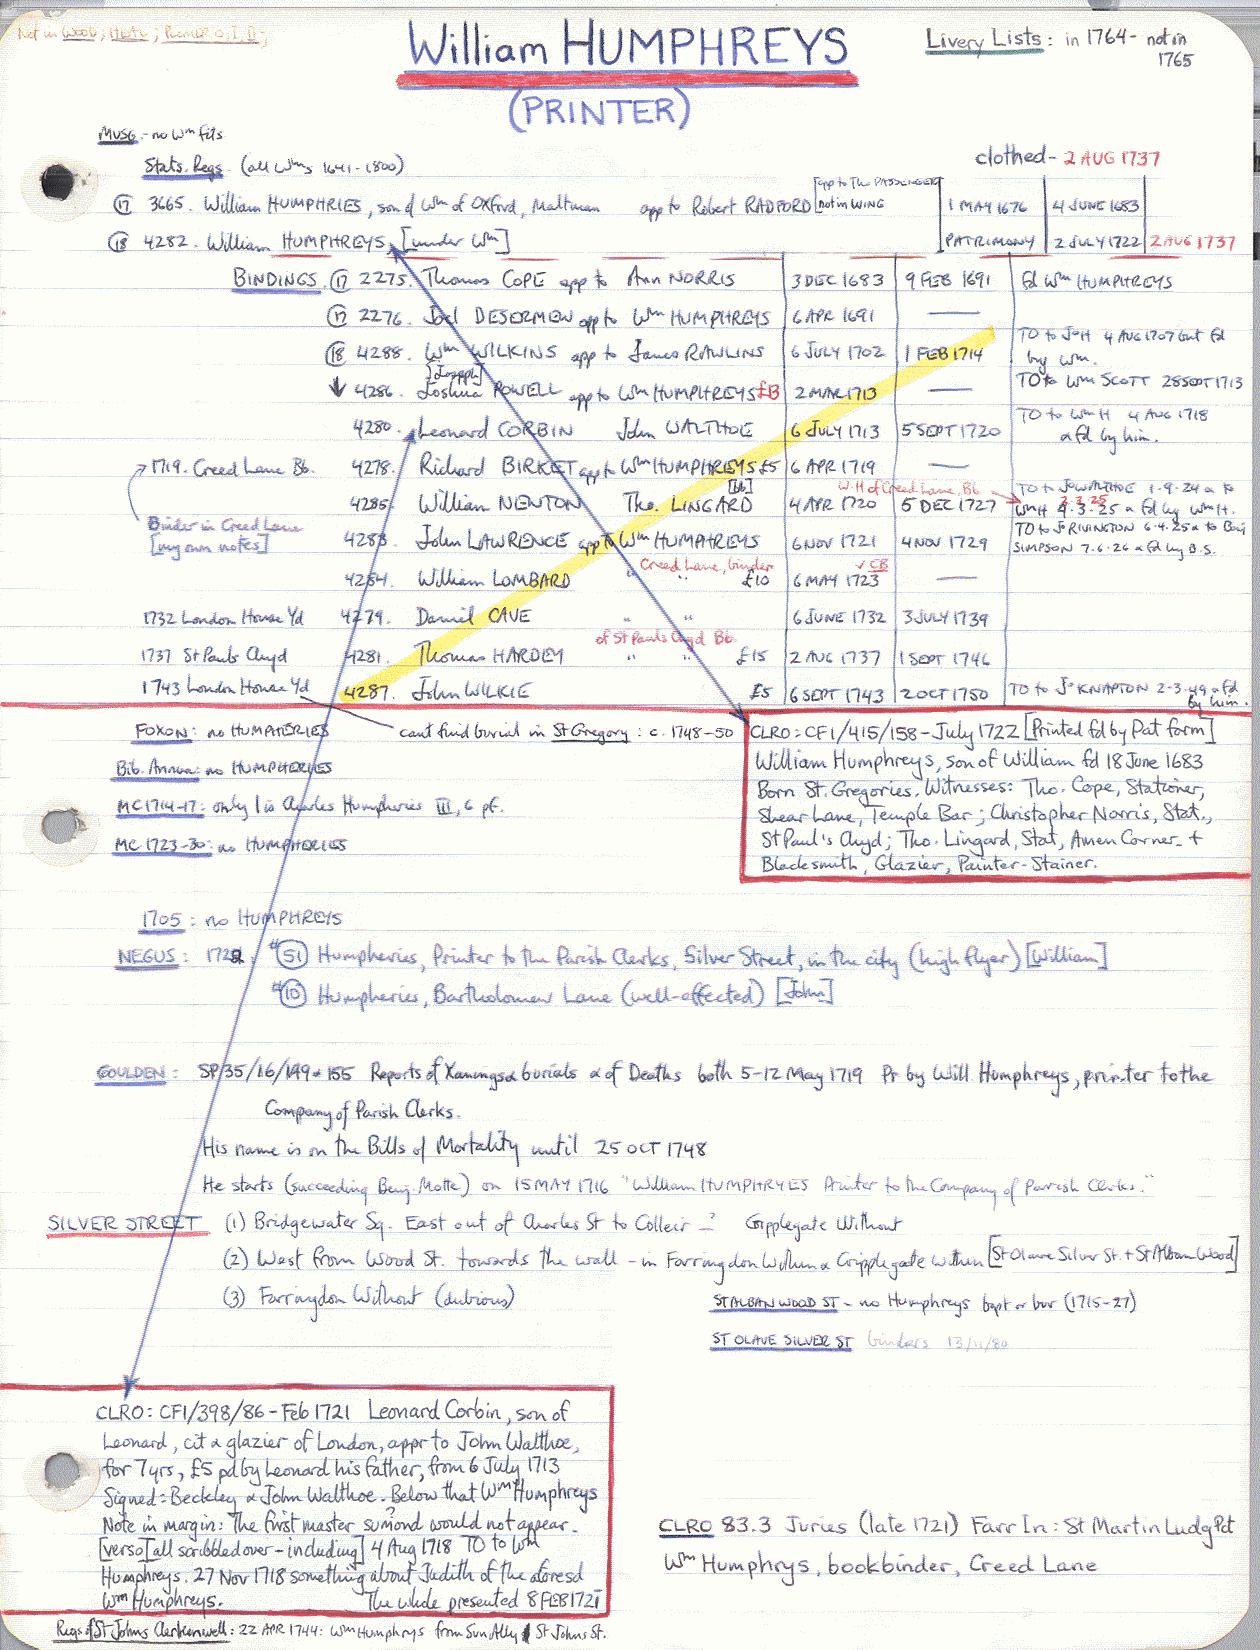 Not in WOOD; HEAL; PLOMER O, I, II;
William HUMPHREYS
(PRINTER)
Livery Lists: in 1764 - not in
1765
MUSG - no Wm fits
Stats. Regs. (all Wms 1641-1800)
clothed - 2 AUG 1737
(17) 3665. William HUMPHRIES, son of Wm of Oxford, Maltman app to Robert RADFORD [app to Tho PASSENGER not in WING 1 MAY 1676 4 JUNE 1683
(18) 4282. William HUMPHREYS, [under Wm] PATRIMONY 2 JULY 1722 2 AUG 1737
BINDINGS. (17) 2275. Thomas COPE app to Ann NORRIS 3 DEC 1683 9 FEB 1691 fd Wm HUMPHREYS
(17) 2276. Joel DESERMEW app to Wm HUMPHREYS 6 APR 1691 —
(18) 4288. Wm WILKINS app to James RAWLINS 6 JULY 1702 1 FEB 1714 TO to J H 4 AUG 1707 but fd by Wm.
[Joseph]
4286. Joshua POWELL app to Wm HUMPHREYS £8 2 MAR 1713 — TO to Wm SCOTT 28 SEPT 1713
4280. Leonard CORBIN John WALTHOE 6 JULY 1713 5 SEPT 1720 TO to Wm H 4 AUG 1718 & fd by him.
1719. Creed Lane Bb. 4278. Richard BIRKET app to Wm HUMPHREYS £5 6 APR 1719 —
W.H of Creed Lane, Bb
4285. William NENTON Tho. LINGARD [bb] 4 APR 1720 5 DEC 1727 TO to Jo WALTHOE 1-9-24 & to Wm H 2.3.25 & fd by Wm H.
Binder in Creed Lane
[my own notes]
4283. John LAWRENCE app to Wm HUMPHREYS 6 NOV 1721 4 NOV 1729 TO to J. RIVINGTON 6-4-25 & to Benj SIMPSON 7-6-26 & fd by B.S.
Creed Lane, binder ✓ CB
4284. William LOMBARD " " £10 6 MAY 1723 —
1732 London House Yd 4279. Daniel CAVE " " 6 JUNE 1732 3 JULY 1739
of St Pauls Chyd Bb.
1737 St Pauls Chyd 4281. Thomas HARDEY " " £15 2 AUG 1737 1 SEPT 1746
1743 London House Yd 4287. John WILKIE £5 6 SEPT 1743 2 OCT 1750 TO to Jn KNAPTON 2-3-49 & fd by him.
FOXON: no HUMPHERIES cant find burial in St Gregory: c. 1748-50
Bib. Annua: no HUMPHERIES
MC 1714-17: only 1 is Charles Humpheries III, 6 pf.
MC 1723-30: no HUMPHERIES
CLRO: CF1/415/158 - July 1722 [Printed fd by Pat form]
William Humphreys, son of William fd 18 June 1683
Born St. Gregories. Witnesses: Tho. Cope, Stationer,
Shear Lane, Temple Bar; Christopher Norris, Stat.,
St Paul's Chyd; Tho. Lingard, Stat, Amen Corner +
Blacksmith, Glazier, Painter-Stainer.
1705: no HUMPHREYS
NEGUS: 1722. #(51) Humpheries, Printer to the Parish Clerks, Silver Street, in the city (high flyer) [William]
#(10) Humpheries, Bartholomew Lane (well-affected) [John]
GOULDEN: SP 35/16/149 & 155 Reports of Xænings & burials & of Deaths both 5-12 May 1719 Pr by Will Humphreys, printer to the
Company of Parish Clerks.
His name is on the Bills of Mortality until 25 OCT 1748
He starts (succeeding Benj. Motte) on 15 MAY 1716 "William HUMPHRYES Printer to the Company of Parrish Clerks."
SILVER STREET (1) Bridgewater Sq. East out of Charles St to Colleir - ? Cripplegate Without
(2) West from Wood St. towards the wall - in Farringdon Within & Cripplegate within [St Olave Silver St. + St Alban Wood]
(3) Farringdon Without (dubious)
ST ALBAN WOOD ST - no Humphreys bapt or bur (1715-27)
ST OLAVE SILVER ST binders 13/11/80
CLRO: CF1/398/86 - Feb 1721 Leonard Corbin, son of
Leonard, cit & glazier of London, appr to John Walthoe,
for 7 yrs, £5 pd by Leonard his father, from 6 July 1713
Signed: Beckley & John Walthoe. Below that Wm Humphreys
Note in margin: The first master sumond would not appear.
[verso] [all scribbled over - including] 4 Aug 1718 TO to Wm
Humphreys. 27 Nov 1718 something about Judith of the aforesd
Wm Humphreys. The whole presented 8 FEB 1721
Regs of St Johns Clerkenwell: 22 APR 1744: Wm Humphrys from Sun Alley St Johns St.
CLRO 83.3 Juries (late 1721) Farr In: St Martin Ludg Pct
Wm Humphrys, bookbinder, Creed Lane